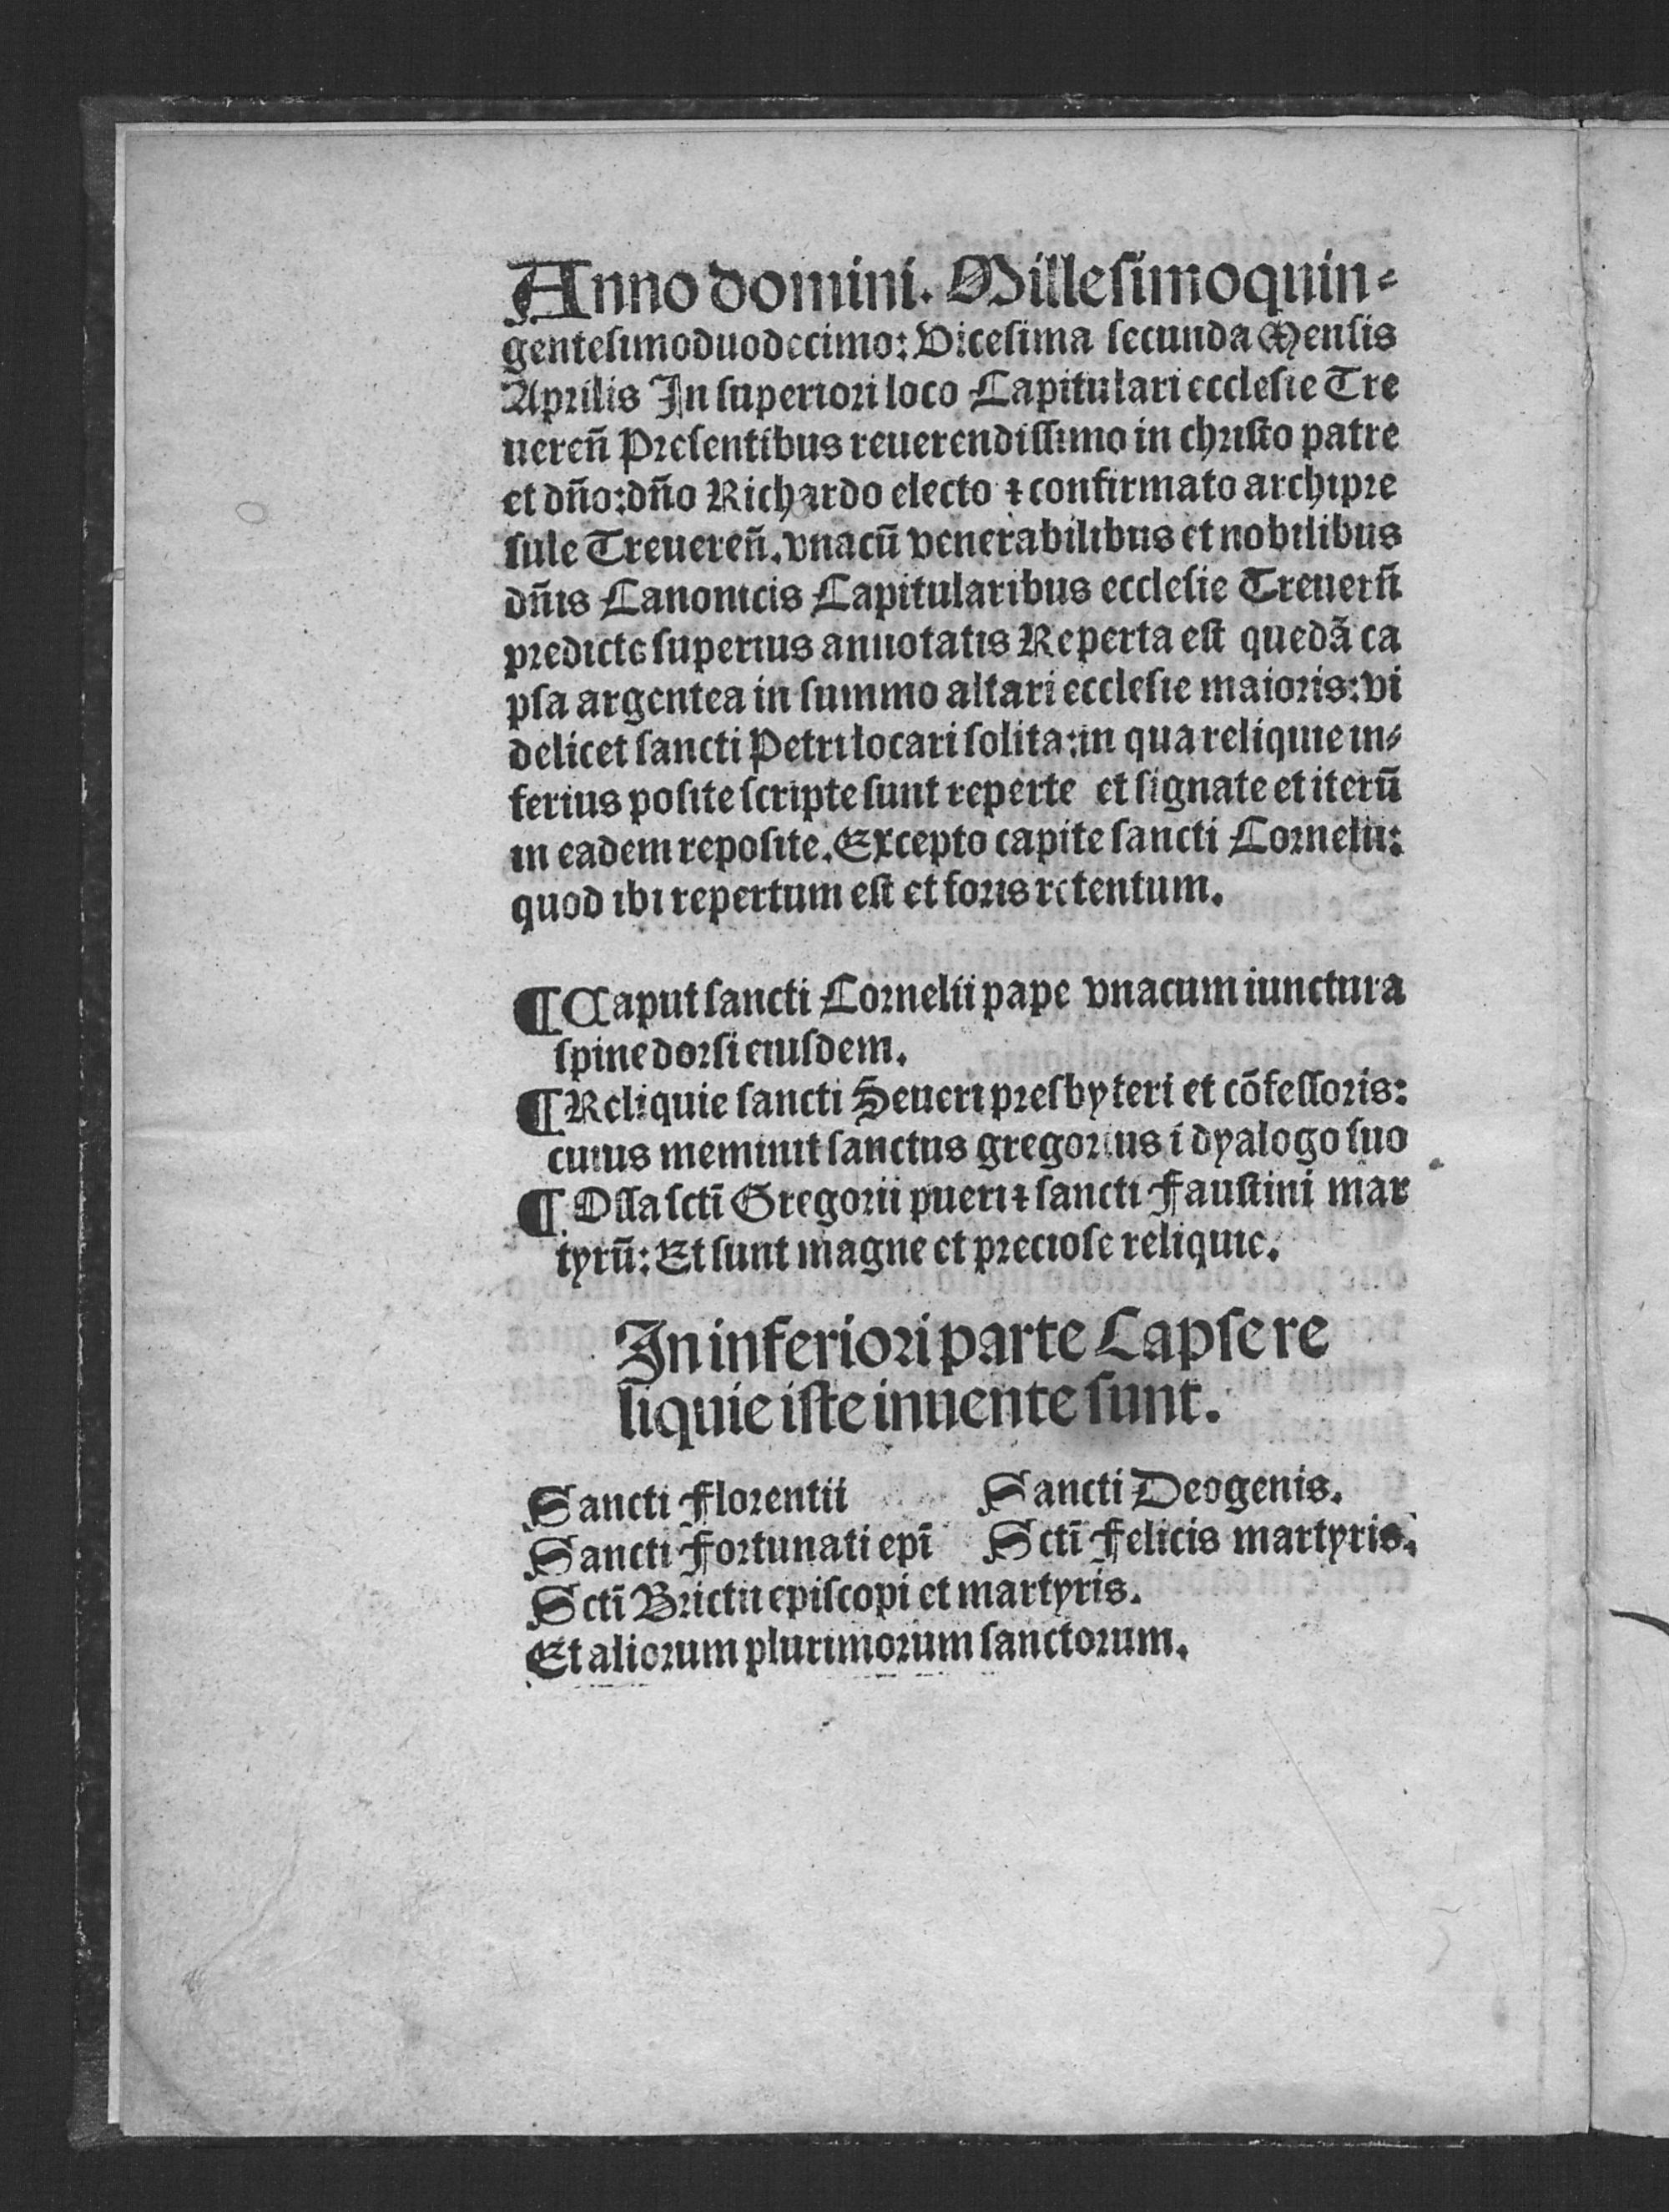 Anno domini. Millesimoquin⸗
gentesimoduodecimo: Vicesima secunda Mensis
Aprilis In superiori loco Capitulari ecclesie Tre
ueren̄ Presentibus reuerendissimo in christo patre
et dn̄o: dn̄o Richardo electo ⁊ confirmato archipre
sule Treueren̄. vnacū venerabilibus et nobilibus
dn̄is Canonicis Capitularibus ecclesie Treuern̄
predicte superius annotatis Reperta est quedā ca
psa argentea in summo altari ecclesie maioris: vi
delicet sancti Petri locari solita: in qua reliquie in⸗
ferius posite scripte sunt reperte et signate et iterū
in eadem reposite. Excepto capite sancti Cornelii:
quod ibi repertum est et foris retentum.
¶ Caput sancti Cornelii pape vnacum iunctura
spine dorsi eiusdem.
¶ Reliquie sancti Seueri presbyteri et cōfessoris:
cuius meminit sanctus gregorius ī dyalogo suo
¶ Ossa sctī Gregorii pueri ⁊ sancti Faustini mar
tyrū: Et sunt magne et preciose reliquie.
In inferiori parte Capse re
liquie iste inuente sunt.
Sancti Florentii Sancti Deogenis.
Sancti Fortunati epī Sctī Felicis martyris.
Sctī Brictii episcopi et martyris.
Et aliorum plurimorum sanctorum.